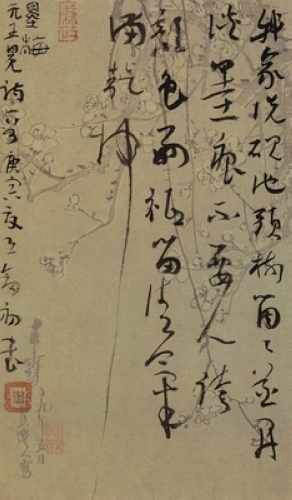 我家洗硯池頭樹箇〻花開
淡墨痕不要人誇
顏色好祗留清氣
滿乾坤
墨梅
元王冕詩一首庚寅夏書